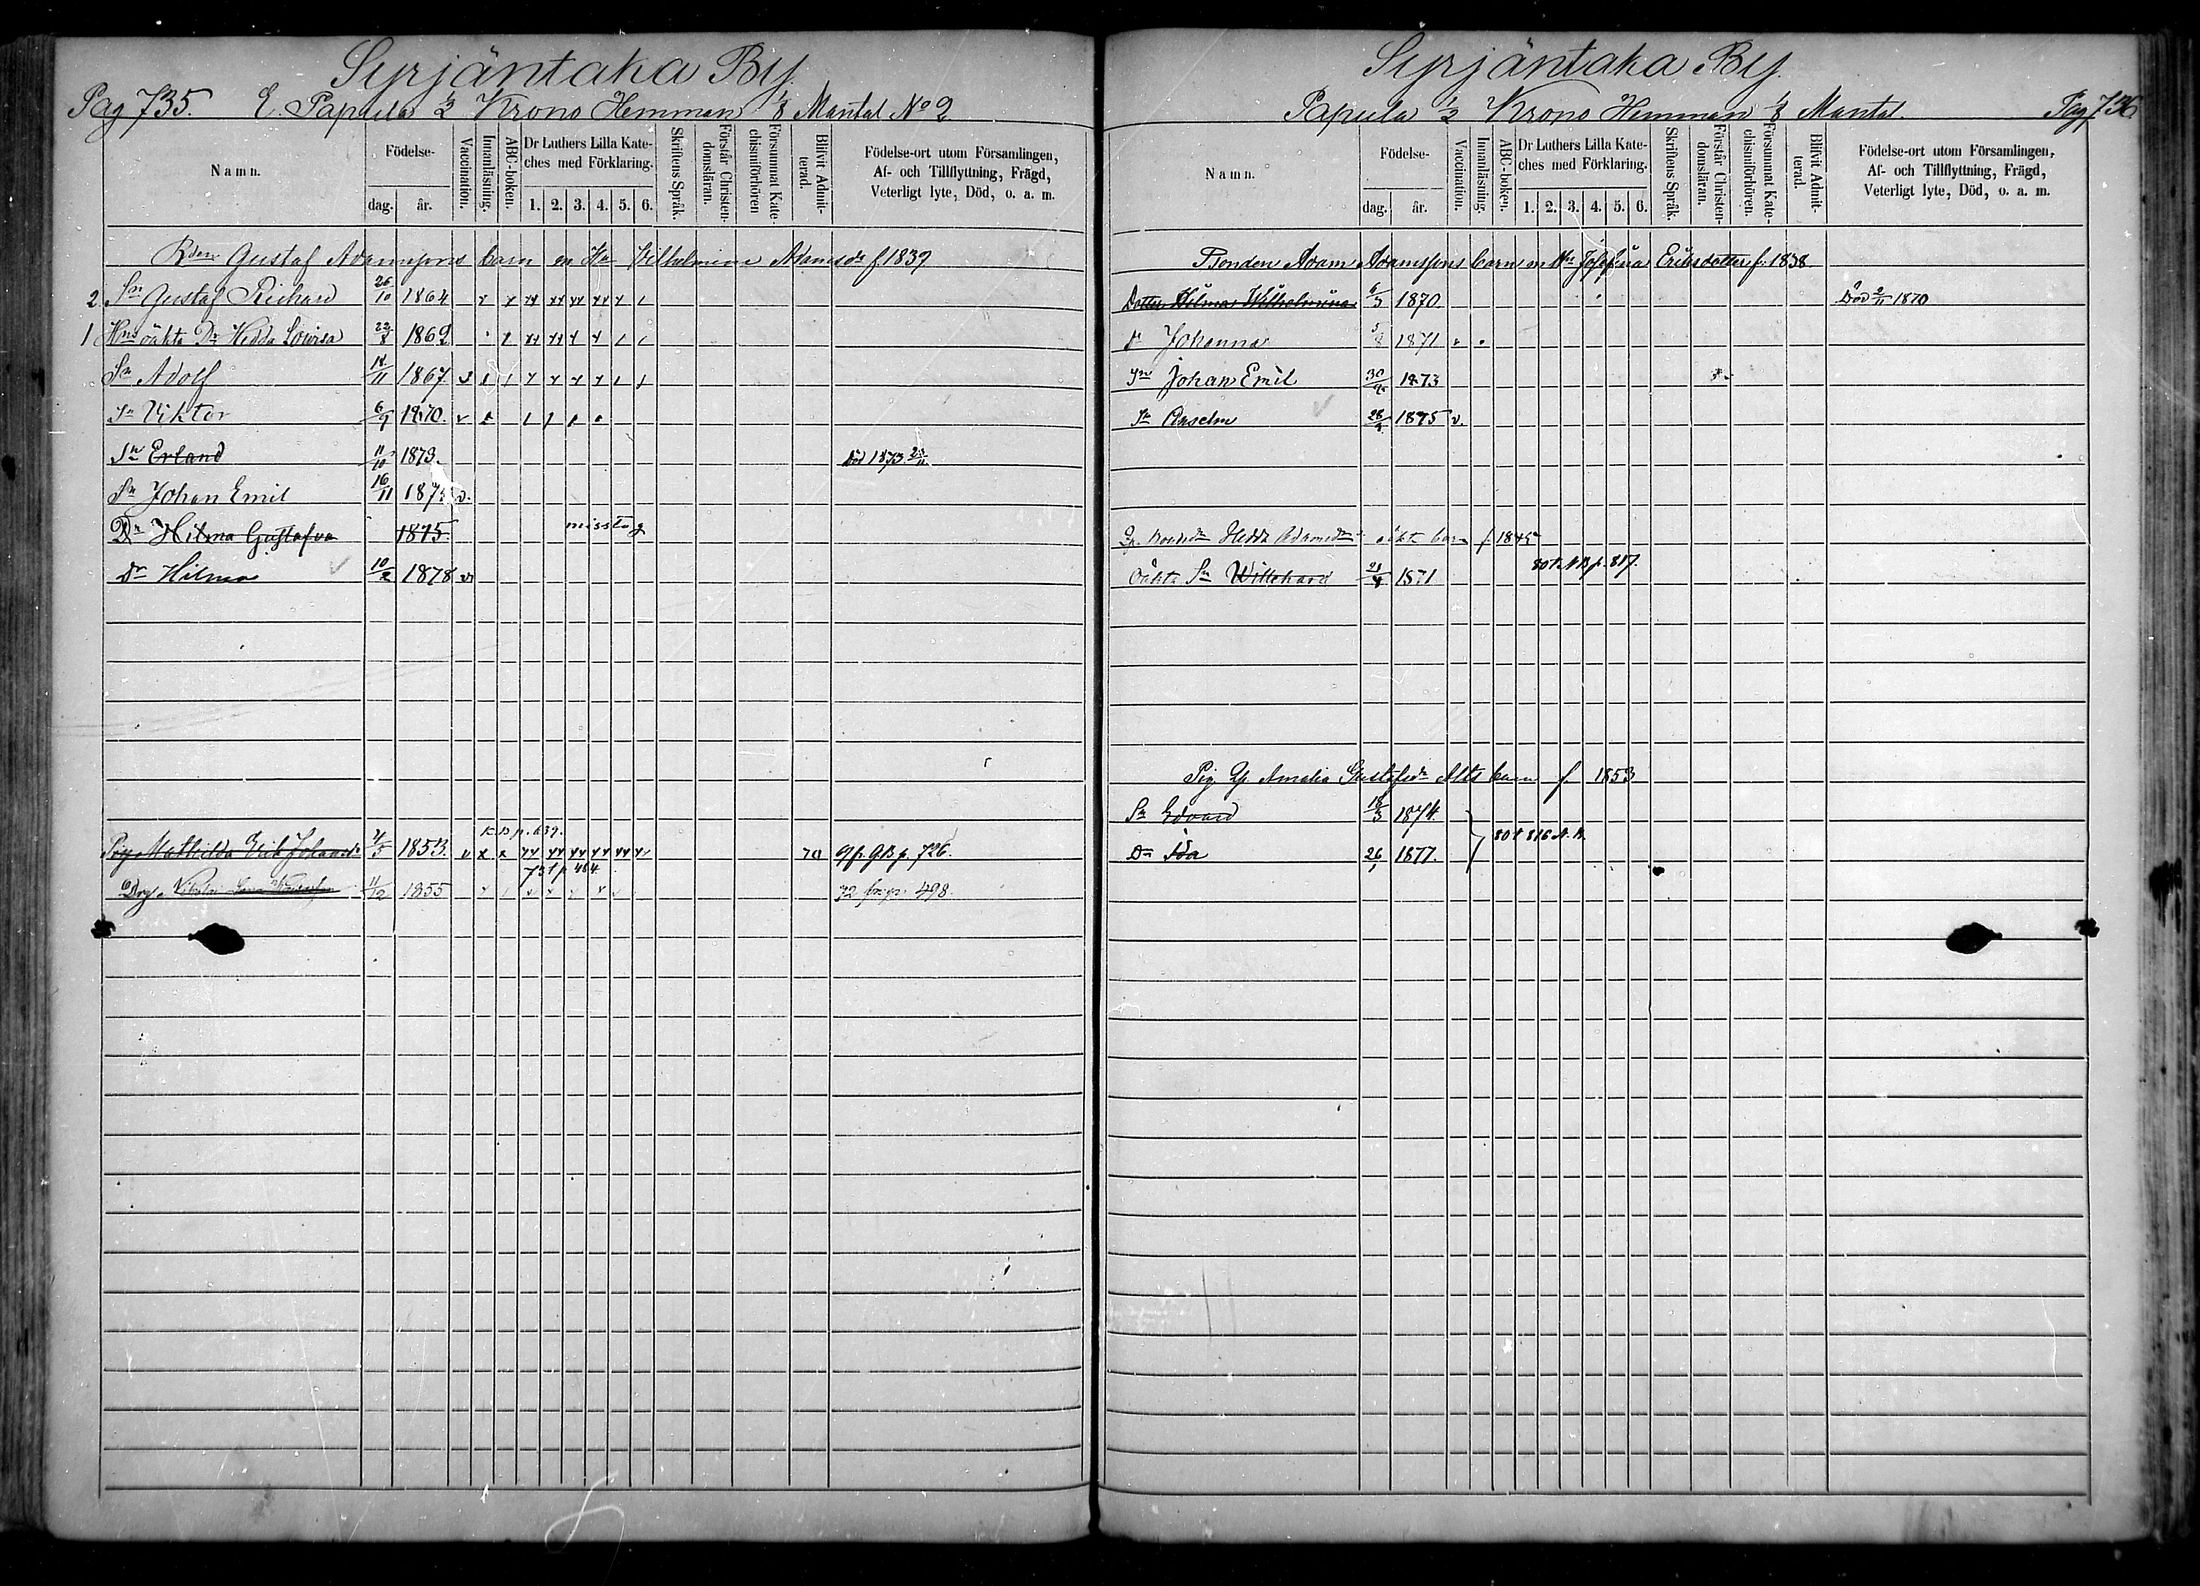 Syrjäntaka By
Pag 735. E. Papula ½ Krono Hemman ⅛ Mantal No 2
Namn.
Födelse-
dag. år.
Vaccination.
Innanläsning.
ABC-boken.
Dr Luthers Lilla Kate-
ches med Förklaring.
1. 2. 3. 4. 5. 6.
Skriftens Språk.
Förstår Christen-
domsläran.
Försummat Kate-
chismiförhören
Blifvit Admit-
terad.
Födelse-ort utom Församlingen,
Af- och Tillflyttning, Frägd,
Veterligt lyte, Död, o. a. m.
Bden Gustaf Adamssons barn m Hu Vilhelmina Adamsdr f 1839
2 Sn Gustaf Richard 26/10 1864
1 Hns oäkta Dr Hedda Lovisa 22/8 1862
Sn Adolf 18/11 1867
Sn Viktor 6/9 1870. v
Sn Erland 11/10 1873. Död 1873
Sn Johan Emil 16/11 187 v.
Dr Hilma Gustafva 1875. misstag
Dr Hilma 10/2 1878 v
K B p. 639.
Pig. Mathilda Erik Johansdr 4/5 1853. v 70 af p. GB p. 726.
73 t p 484
Drg. 11/12 1855 72 fr. p. 498.
Syrjäntaka By
Papula ½ Krono Hemman ⅛ Mantal. Pag. 736
Namn.
Födelse-
dag. år.
Vaccination.
Innanläsning.
ABC-boken.
Dr Luthers Lilla Kate-
ches med Förklaring.
1. 2. 3. 4. 5. 6.
Skriftens Språk.
Förstår Christen-
domsläran.
Försummat Kate-
chismiförhören.
Blifvit Admit-
terad.
Födelse-ort utom Församlingen,
Af- och Tillflyttning, Frägd,
Veterligt lyte, Död, o. a. m.
Bonden Adam Adamssons barn m Hu Josefina Eriksdotter f. 1838
Dotter Hilma Wilhelmina 6/3 1870 Död 2/11 1870
Dr Johanna 5/8 1871
Sn Johan Emil 30/ 1873
Sn Anselm 28/ 1875 v.
Hedda Adamsdr oäkt barn f 1845
80 t. N B p. 817.
Oäkta Sn Willehard 21/ 1871
Pig Amalia Gustafsdr barn f. 1853
Sn Edvard 18/3 1874.
80 t 816 N. B.
Dr Ida 26/1 1877.